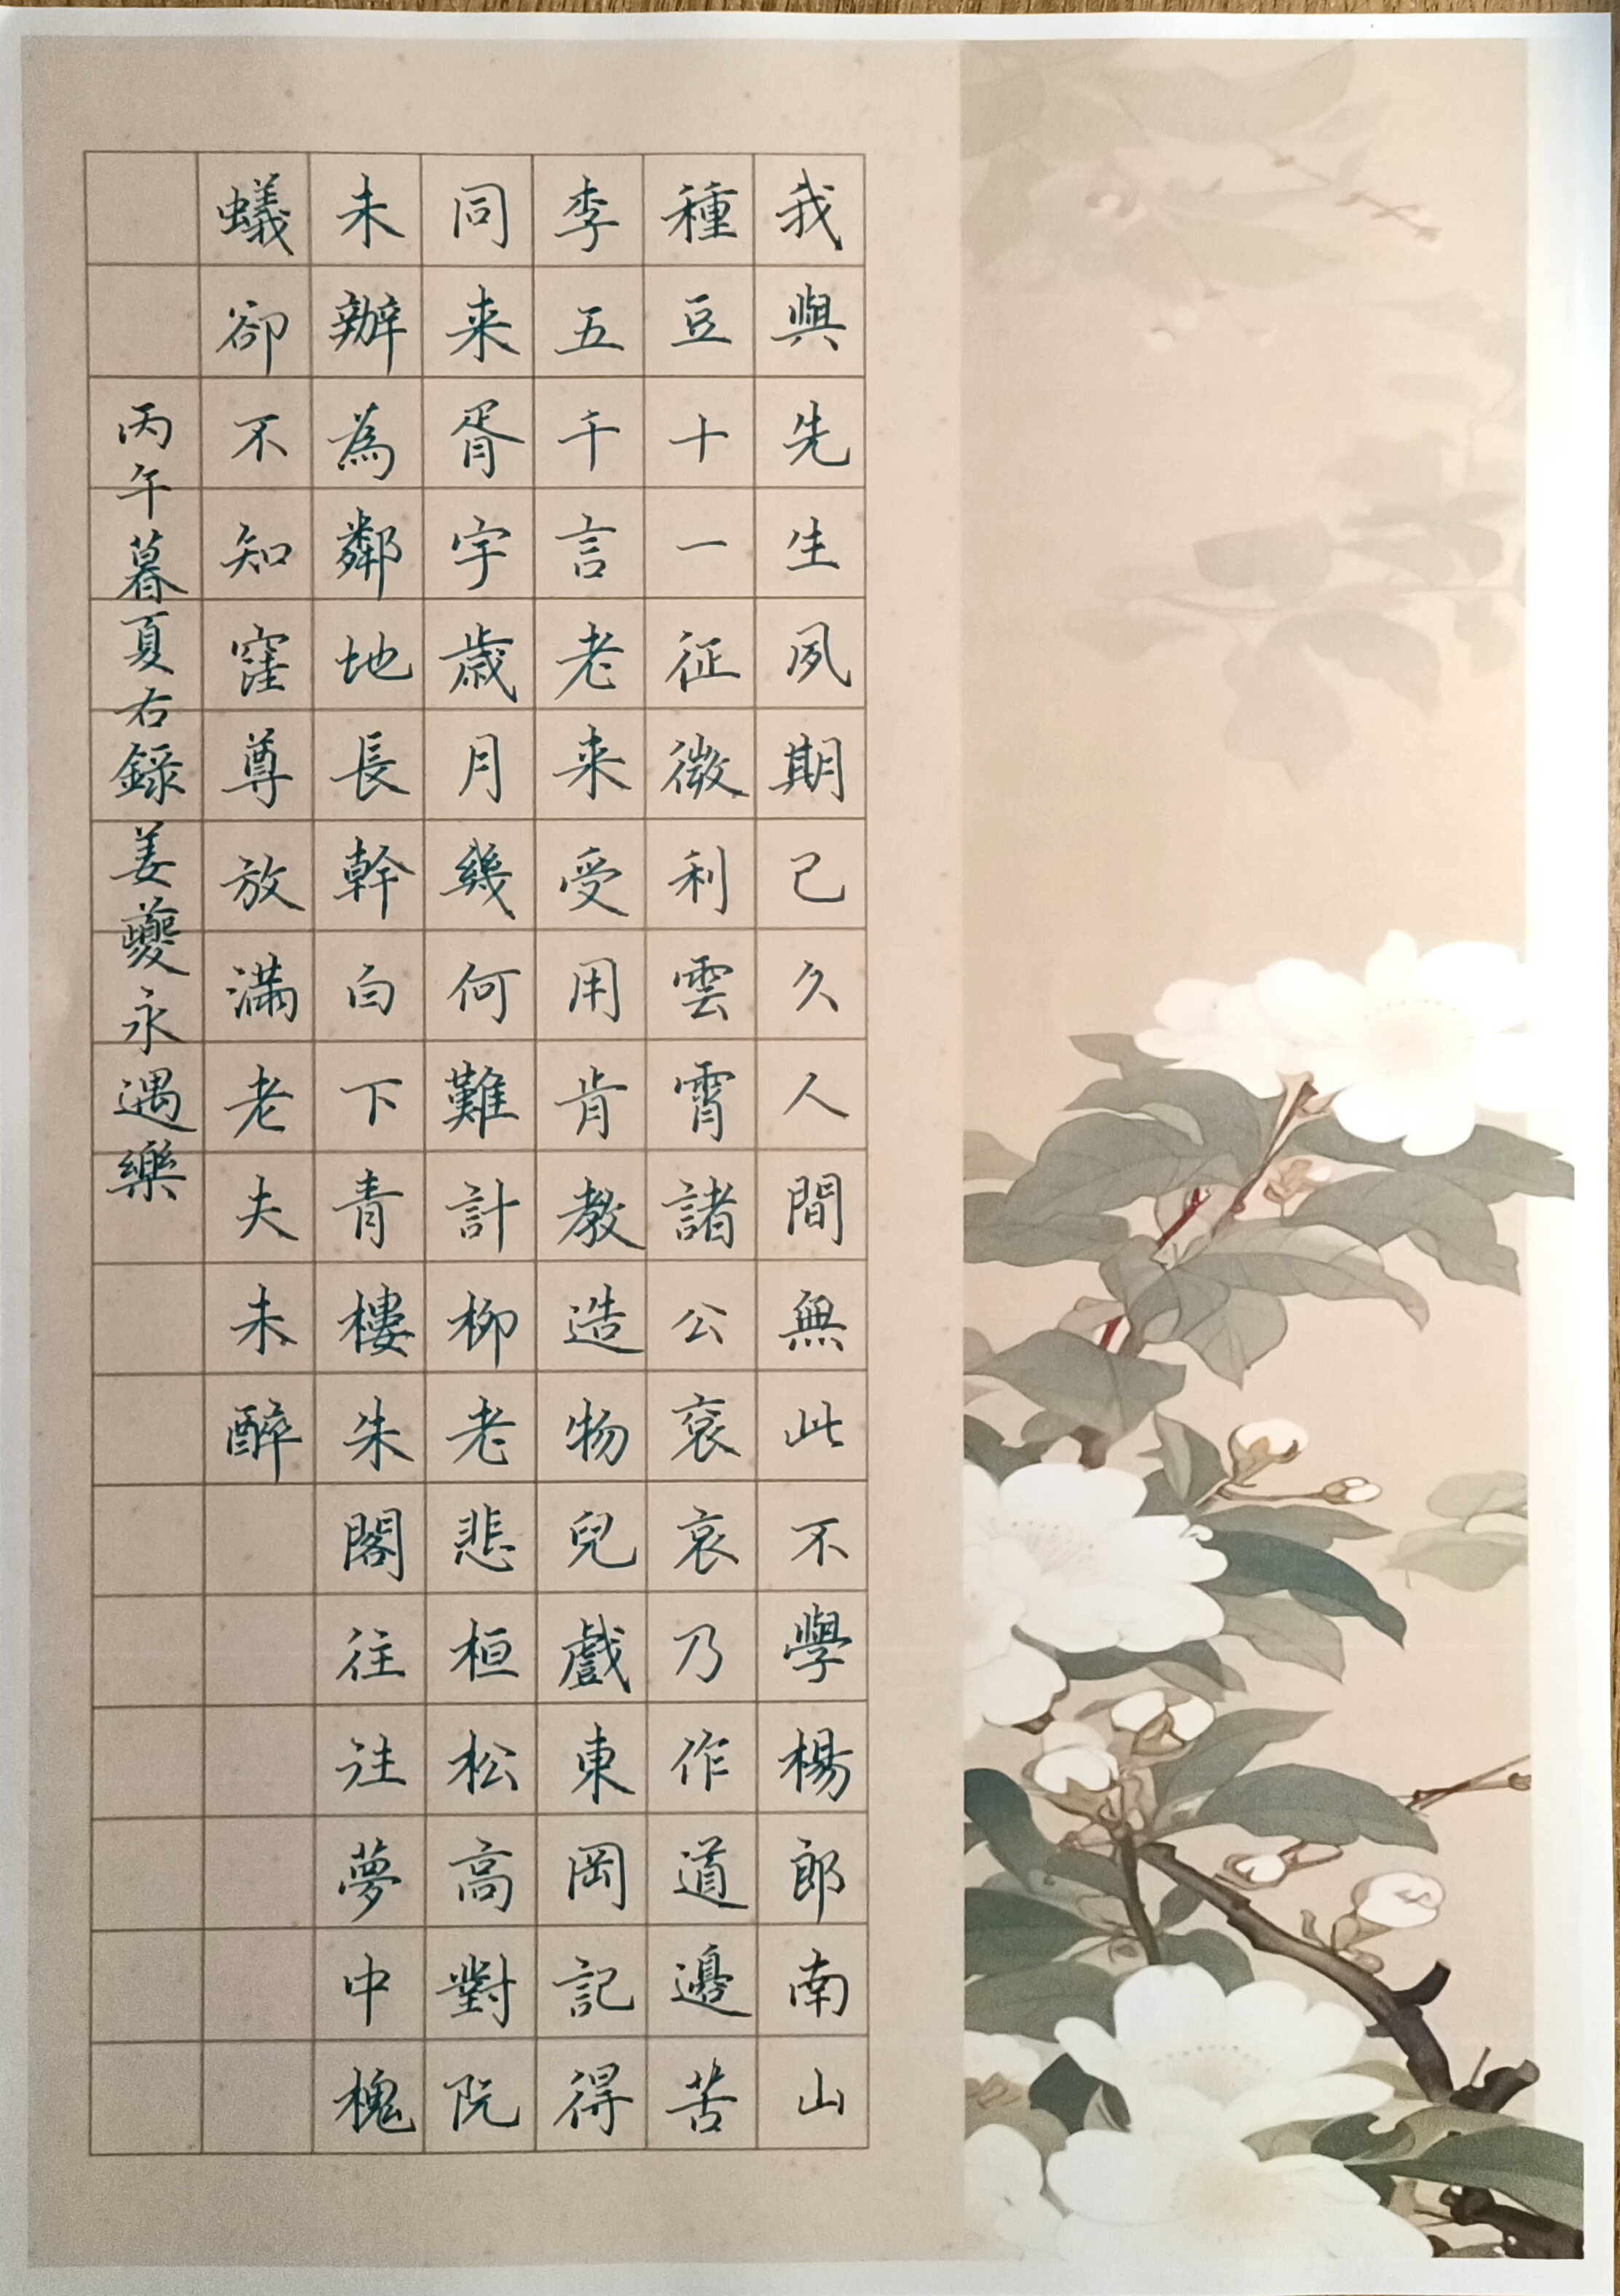 我與先生夙期已久人間無此不學楊郎南山
種豆十一征微利雲霄諸公衮衮乃作道邊苦
李五千言老来受用肯教造物兒戲東岡記得
同来胥宇歲月幾何難計柳老悲桓松高對阮
未辦為鄰地長幹白下青樓朱閣往往夢中槐
蟻卻不知窪尊放滿老夫未醉
丙午暮夏右錄姜夔永遇樂